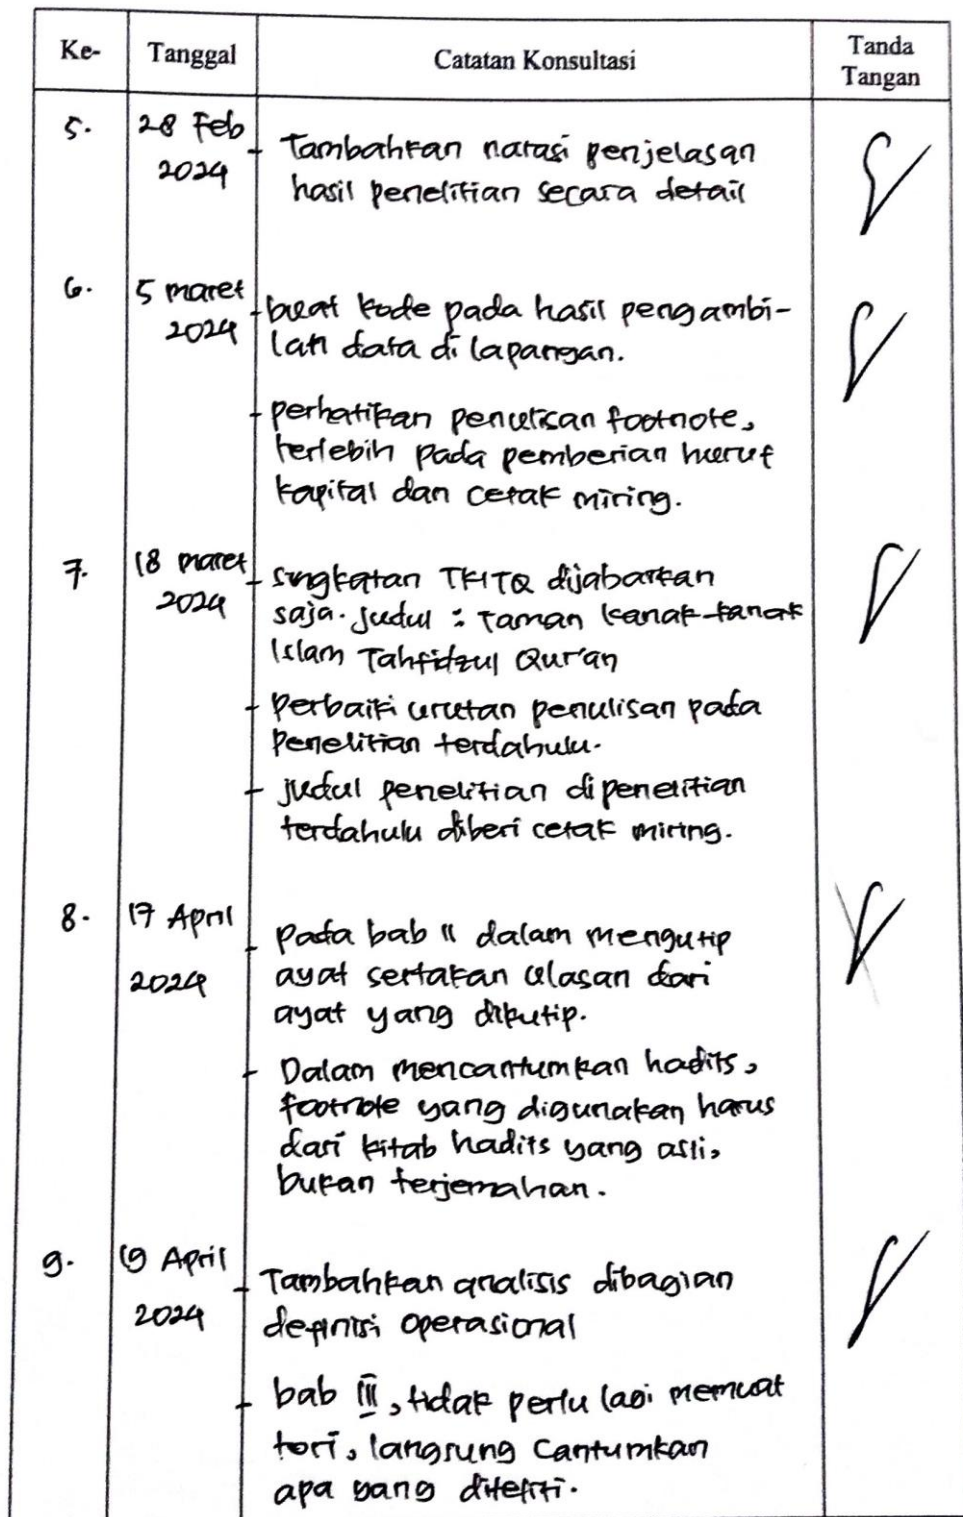 Ke- Tanggal Catatan Konsultasi Tanda Tangan
5. 28 Feb 2024
- Tambahkan narasi penjelasan
hasil penelitian secara detail
6. 5 maret 2024
- buat kode pada hasil pengambi-
lan data di lapangan.
- perhatikan penulisan footnote,
terlebih pada pemberian huruf
kapital dan cetak miring.
7. 18 maret 2024
- singkatan TKITQ dijabarkan
saja. judul : Taman kanak-kanak
Islam Tahfidzul Qur'an
- Perbaiki urutan penulisan pada
penelitian terdahulu.
- judul penelitian dipenelitian
terdahulu diberi cetak miring.
8. 17 April 2024
- pada bab II dalam mengutip
ayat sertakan ulasan dari
ayat yang dikutip.
- Dalam mencantumkan hadits,
footnote yang digunakan harus
dari kitab hadits yang asli,
bukan terjemahan.
9. 19 April 2024
- Tambahkan analisis dibagian
definisi operasional
- bab III, tidak perlu lagi memuat
tori, langsung cantumkan
apa yang diteliti.